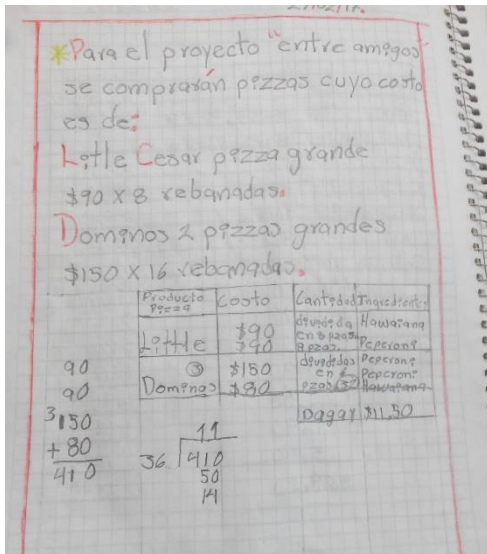 *Para el proyecto "entre amigos"
se comprarán pizzas cuyo costo
es de:
Little Cesar pizza grande
$90 x 8 rebanadas.
Dominos 2 pizzas grandes
$150 x 16 rebanadas.
Producto Pizza Costo Cantidad Ingredientes
Little $90 $90 divedida en 8 pzas 8 pzas. Hawaiana Peperoni
③ Dominos $150 $80 divedidas en pzas Peperoni Peperoni Hawaiana
pagar $11.50
90
90
3 150
+ 80
410
11
36 410
50
14